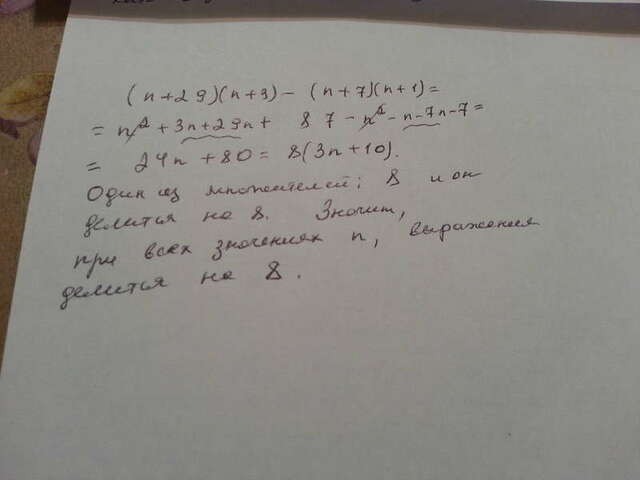 (n+29)(n+3) - (n+7)(n+1) =
= n² + 3n + 29n + 87 - n² - n - 7n - 7 =
= 24n + 80 = 8(3n + 10).
Один из множителей: 8 и он
делится на 8. Значит,
при всех значениях n, выражения
делится на 8.